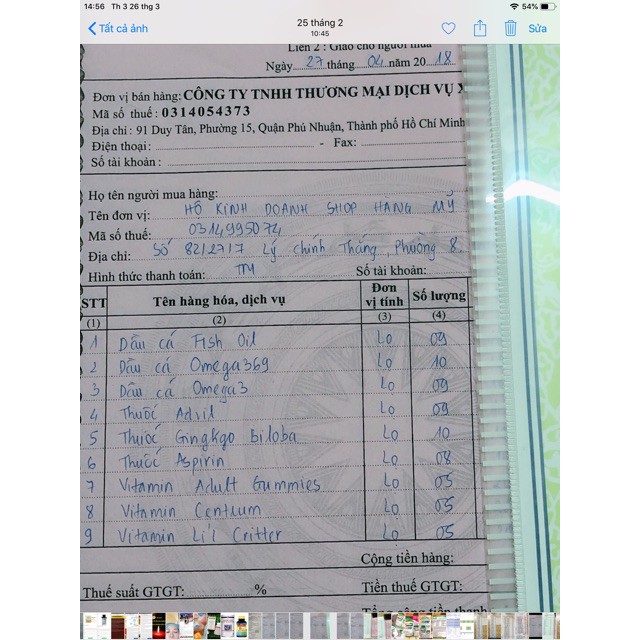 14:56 Th 3 26 thg 3 54%
Tất cả ảnh
25 tháng 2
10:45
Sửa
Liên 2 : Giao cho người mua
Ngày 27 tháng 04 năm 20 18
Đơn vị bán hàng: CÔNG TY TNHH THƯƠNG MẠI DỊCH VỤ X
Mã số thuế : 0314054373
Địa chỉ : 91 Duy Tân, Phường 15, Quận Phú Nhuận, Thành phố Hồ Chí Minh
Điện thoại: - Fax:
Số tài khoản :
Họ tên người mua hàng:
Tên đơn vị: HỘ KINH DOANH SHOP HÀNG MỸ
Mã số thuế: 0314995074
Địa chỉ: Số 82/27/7 Lý Chính Thắng, Phường 8.
Hình thức thanh toán: TM Số tài khoản:
STT Tên hàng hóa, dịch vụ Đơn vị tính Số lượng
(1) (2) (3) (4)
1 Dầu cá Fish Oil Lọ 09
2 Dầu cá Omega369 Lọ 10
3 Dầu cá Omega3 Lọ 09
4 Thuốc Advil Lọ 09
5 Thuốc Gingkgo Biloba Lọ 10
6 Thuốc Aspirin Lọ 08
7 Vitamin Adult Gummies Lọ 05
8 Vitamin Centrum Lọ 05
9 Vitamin Li'l Critter Lọ 05
Cộng tiền hàng:
Thuế suất GTGT: % Tiền thuế GTGT:
Tổng cộng tiền thanh